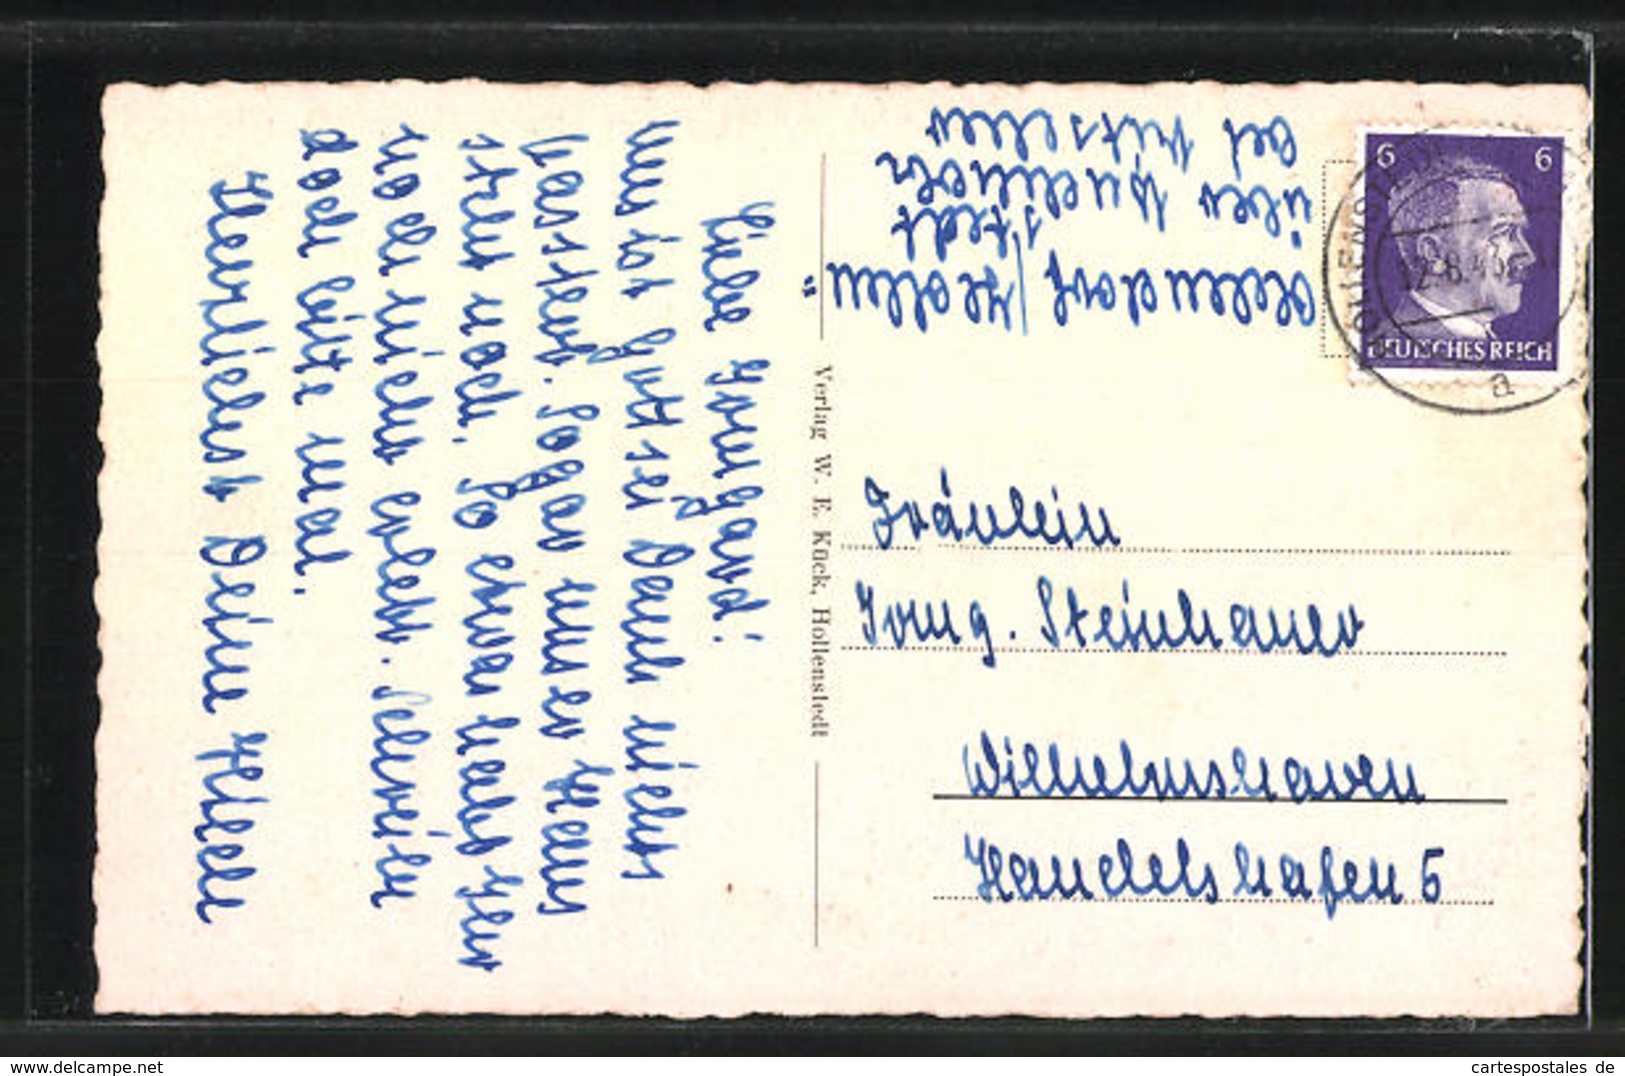 Liebe Irmgard!
Uns ist Gott sei Dank nichts
passiert. Sogar unser Haus
steht noch. So etwas habt Ihr
noch nicht erlebt. Schreibe
doch bitte mal.
Herzlichst Deine
über
bei
Verlag W. E. Kück, Hollenstedt
6 6
DEUTSCHES REICH
12.-8.4
a
Fräulein
Irmg. Steinhauer
Wilhelmshaven
Handelshafen 5
www.delcampe.net
cartespostales de